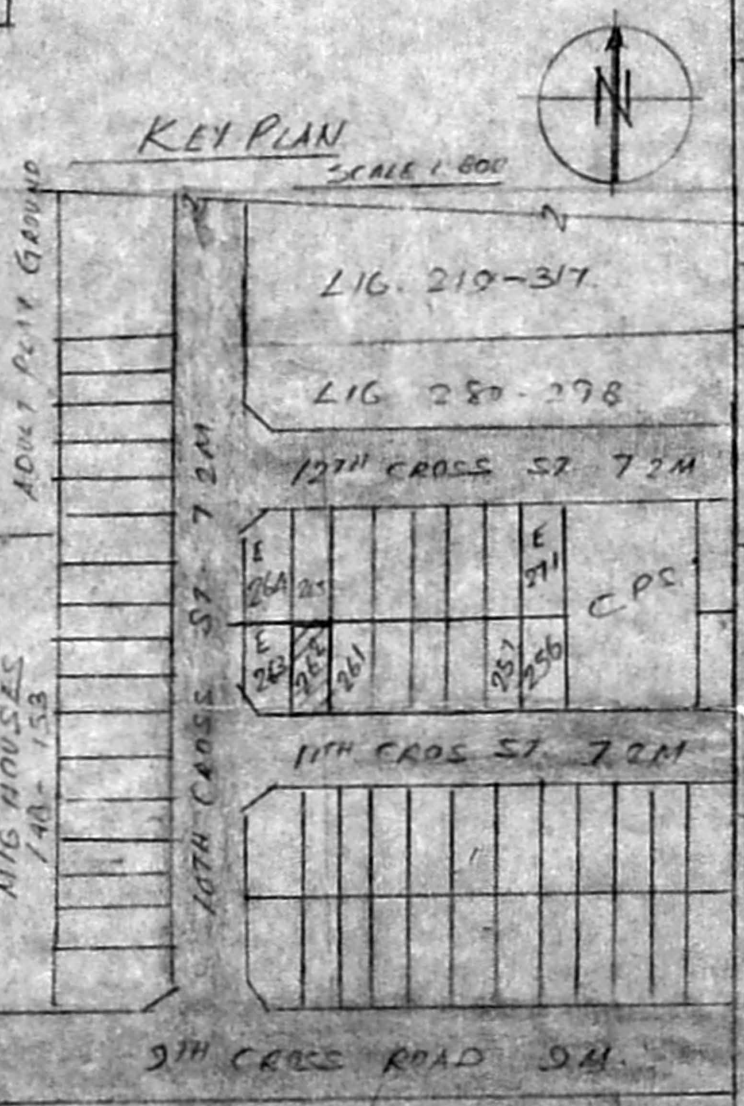 N
KEY PLAN
SCALE 1:800
ADULT PLAY GROUND
LIG. 219-317
LIG 280-298
12TH CROSS ST 7.2M
10TH CROSS ST 7.2M
E
264
265
E
271
CPS
E
263
262
261
257
256
11TH CROS ST. 7.2M
MIG HOUSES
148-153
9TH CROSS ROAD 9M.